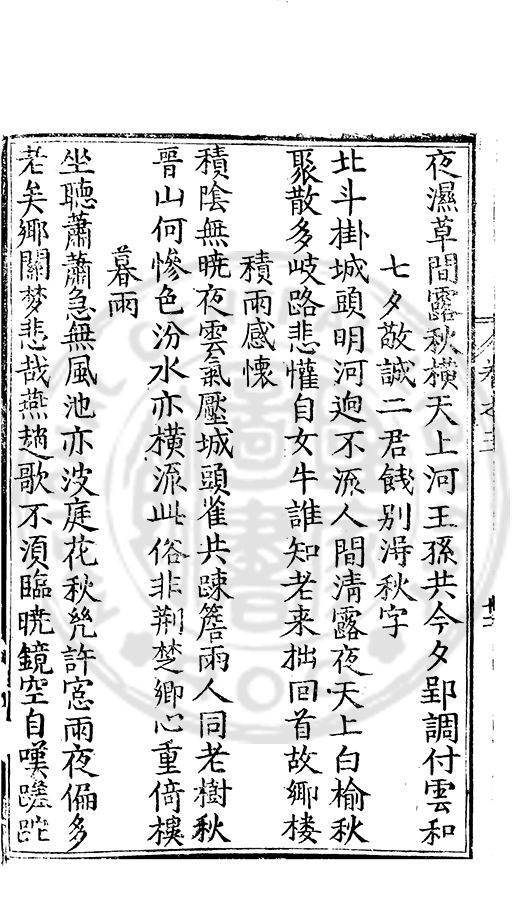 夜濕草間露秋橫天上河王孫共今夕郢調付雲和
七夕敬誠二君餞別淂秋字
北斗掛城頭明河逈不流人間清露夜天上白榆秋
聚散多岐路悲懽自女牛誰知老来拙回首故鄉樓
積雨感懷
積陰無曉夜雲氣壓城頭雀共踈簷雨人同老樹秋
晋山何慘色汾水亦橫流此俗非荆楚鄉心重倚樓
暮雨
坐聽蕭蕭急無風池亦波庭花秋幾許窓雨夜偏多
老矣鄉關梦悲哉燕趙歌不須臨曉鏡空自嘆蹉跎
卷之三